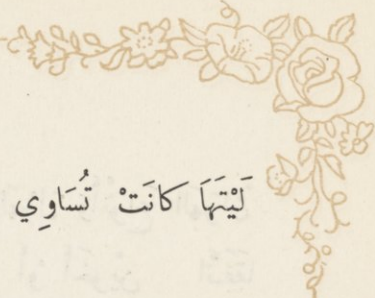 لَيْتَهَا كَانَتْ تُسَاوِي